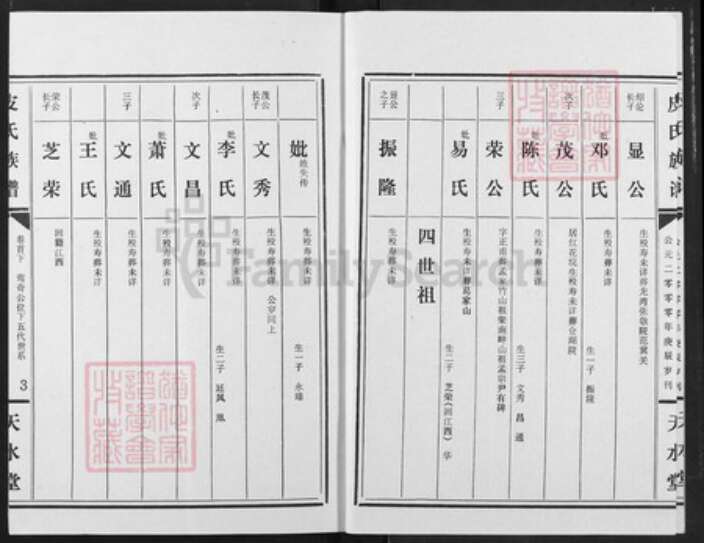 皮氏族谱
公元二零零零年庚辰岁刊
天水堂
绍公长子
显公
生殁寿葬未详
妣
邓氏
生殁寿葬未详
生一子 振隆
次子
茂公
居红花院生殁寿未详葬仓庙院
妣
陈氏
生殁寿葬未详
生三子 文秀 昌 通
三子
荣公
妣
易氏
生殁寿未详葬葛家山
生二子 芝荣(回江西) 华
四世祖
显公之子
振隆
生殁寿葬未详
妣
姓失传
生殁寿葬未详
生一子 永臻
茂公长子
文秀
生殁寿葬未详 公穿同上
妣
李氏
生殁寿葬未详
生二子 廷凤 凰
次子
文昌
生殁寿葬未详
妣
萧氏
生殁寿葬未详
三子
文通
生殁寿葬未详
妣
王氏
生殁寿葬未详
荣公长子
芝荣
回籍江西
皮氏族谱
卷首下
公位下五代世系
3
天水堂
FamilySearch